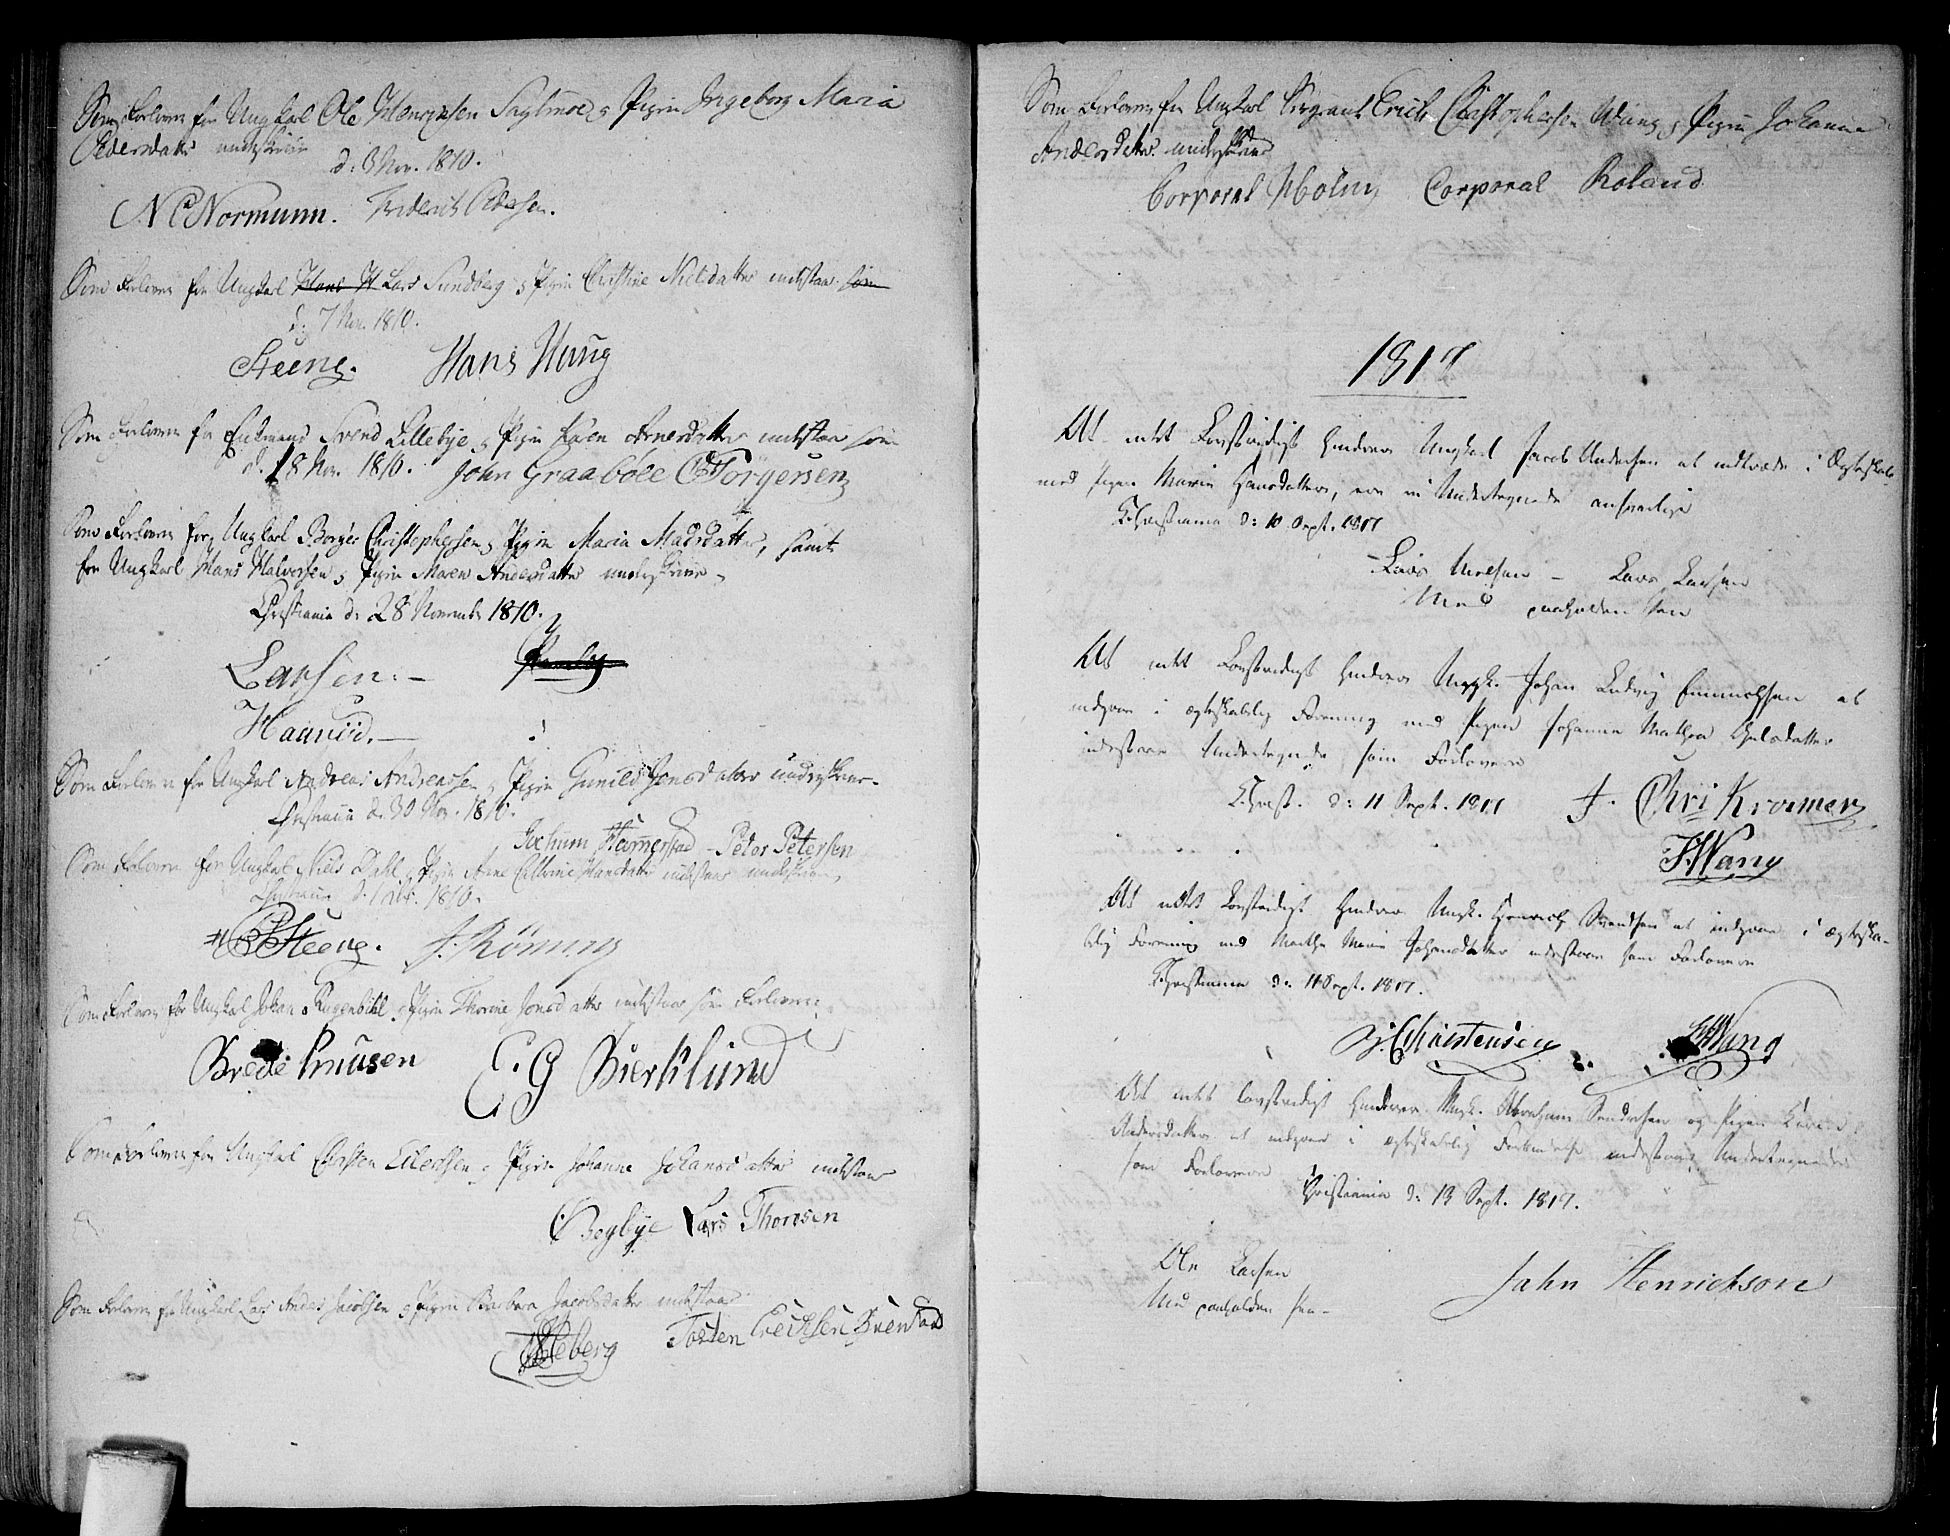 Som Forlovere for Ungkarl Ole Henrichsen Saglmoe og Pigen Ingeborg Maria
Pedersdatter underskrive
d: 3 Nov. 1810.
N C Normunn. Friderich Pedersen.
Som Forlovere for Ungkarl Hans H Lars Sundberg og Pigen Christine Nielsdatter indestaae som
d. 7 Nov. 1810.
Steeng. Hans Haug
Som Forlovere for Enkemand Svend Lillebye og Pigen Karen Arnesdatter indestaae som
d. 18 Nov. 1810. John Graaböle C Törgersen
Som Forlovere for Ungkarl Borger Christophersen og Pigen Maria Madsdatter, samt
for Ungkarl Hans Halvorsen og Pigen Maren Andersdatter underskrive
Christiania d: 28 November 1810.
Larsen.
Haarud.
Som Forlovere for Ungkarl Andreas Andreassen og Pigen Guniled Jonsdatter underskrive
Christiania d. 30 Nov. 1810.
Jochum Hamerstad - Peter Petersen
Som Forlovere for Ungkarl Niels Dahl og Pigen Anne Cathrine Hansdatter indestaae underskrevne
Christiania d. 1 Dec. 1810.
Steeng. J. Röning
Som Forlovere for Ungkarl Johan Rugenbihl og Pigen Thorine Jonsdatter indestaae som Forlovere
Brede Knusen E. G Bierklund
Som Forlovere for Ungkarl Christen Eilertsen og Pigen Johanne Johansdatter indestaae
Bogbye Lars Thomsen
Som Forlovere for Ungkarl Lars Anders Jacobsen og Pigen Barbara Jacobsdatter indestaae
Heberg Tosten Erichsen Buenstad
Som Forlovere for Ungkarl Sergeant Erich Christophersen Wiung og Pigen Johanne
Andersdatter underskrive
Corporal Holm Corporal Roland
1817
At intet Lovstridigt hindrer Ungkarl Jacob Andersen at indtræde i Ægteskab
med Pigen Maria Hansdatter, ere vi Undertegnede ansvarlige
Christiania d: 10 Sept. 1817
Lars Nielsen - Lars Larsen
Med paaholden Pen
At intet Lovstridigt hindrer Ungk. Johan Ludvig Emmichsen at
indgaae i ægteskabelig Forening med Pigen Johanne Mathea Gulsdatter
indestaae Undertegnede som Forlovere
Christ. d: 11 Sept. 1817 F. Chri Krømer
F. Wang
At intet Lovstridigt hindrer Ungk. Henrich Svendsen at indgaae i ægteska-
belig Forening med Marthe Marie Johansdatter indestaae som Forlovere
Christiania d: 11 Sept. 1817.
Christensen Wang
At intet lovstridigt hindrer Ungk. Abraham Sendresen og Pigen Karen
Andersdatter at indgaae i ægteskabelig Forbindelse indestaae Undertegnede
som Forlovere
Christiania d: 13 Sept. 1817.
Ole Larsen John Henrichsen
Med paaholden Pen